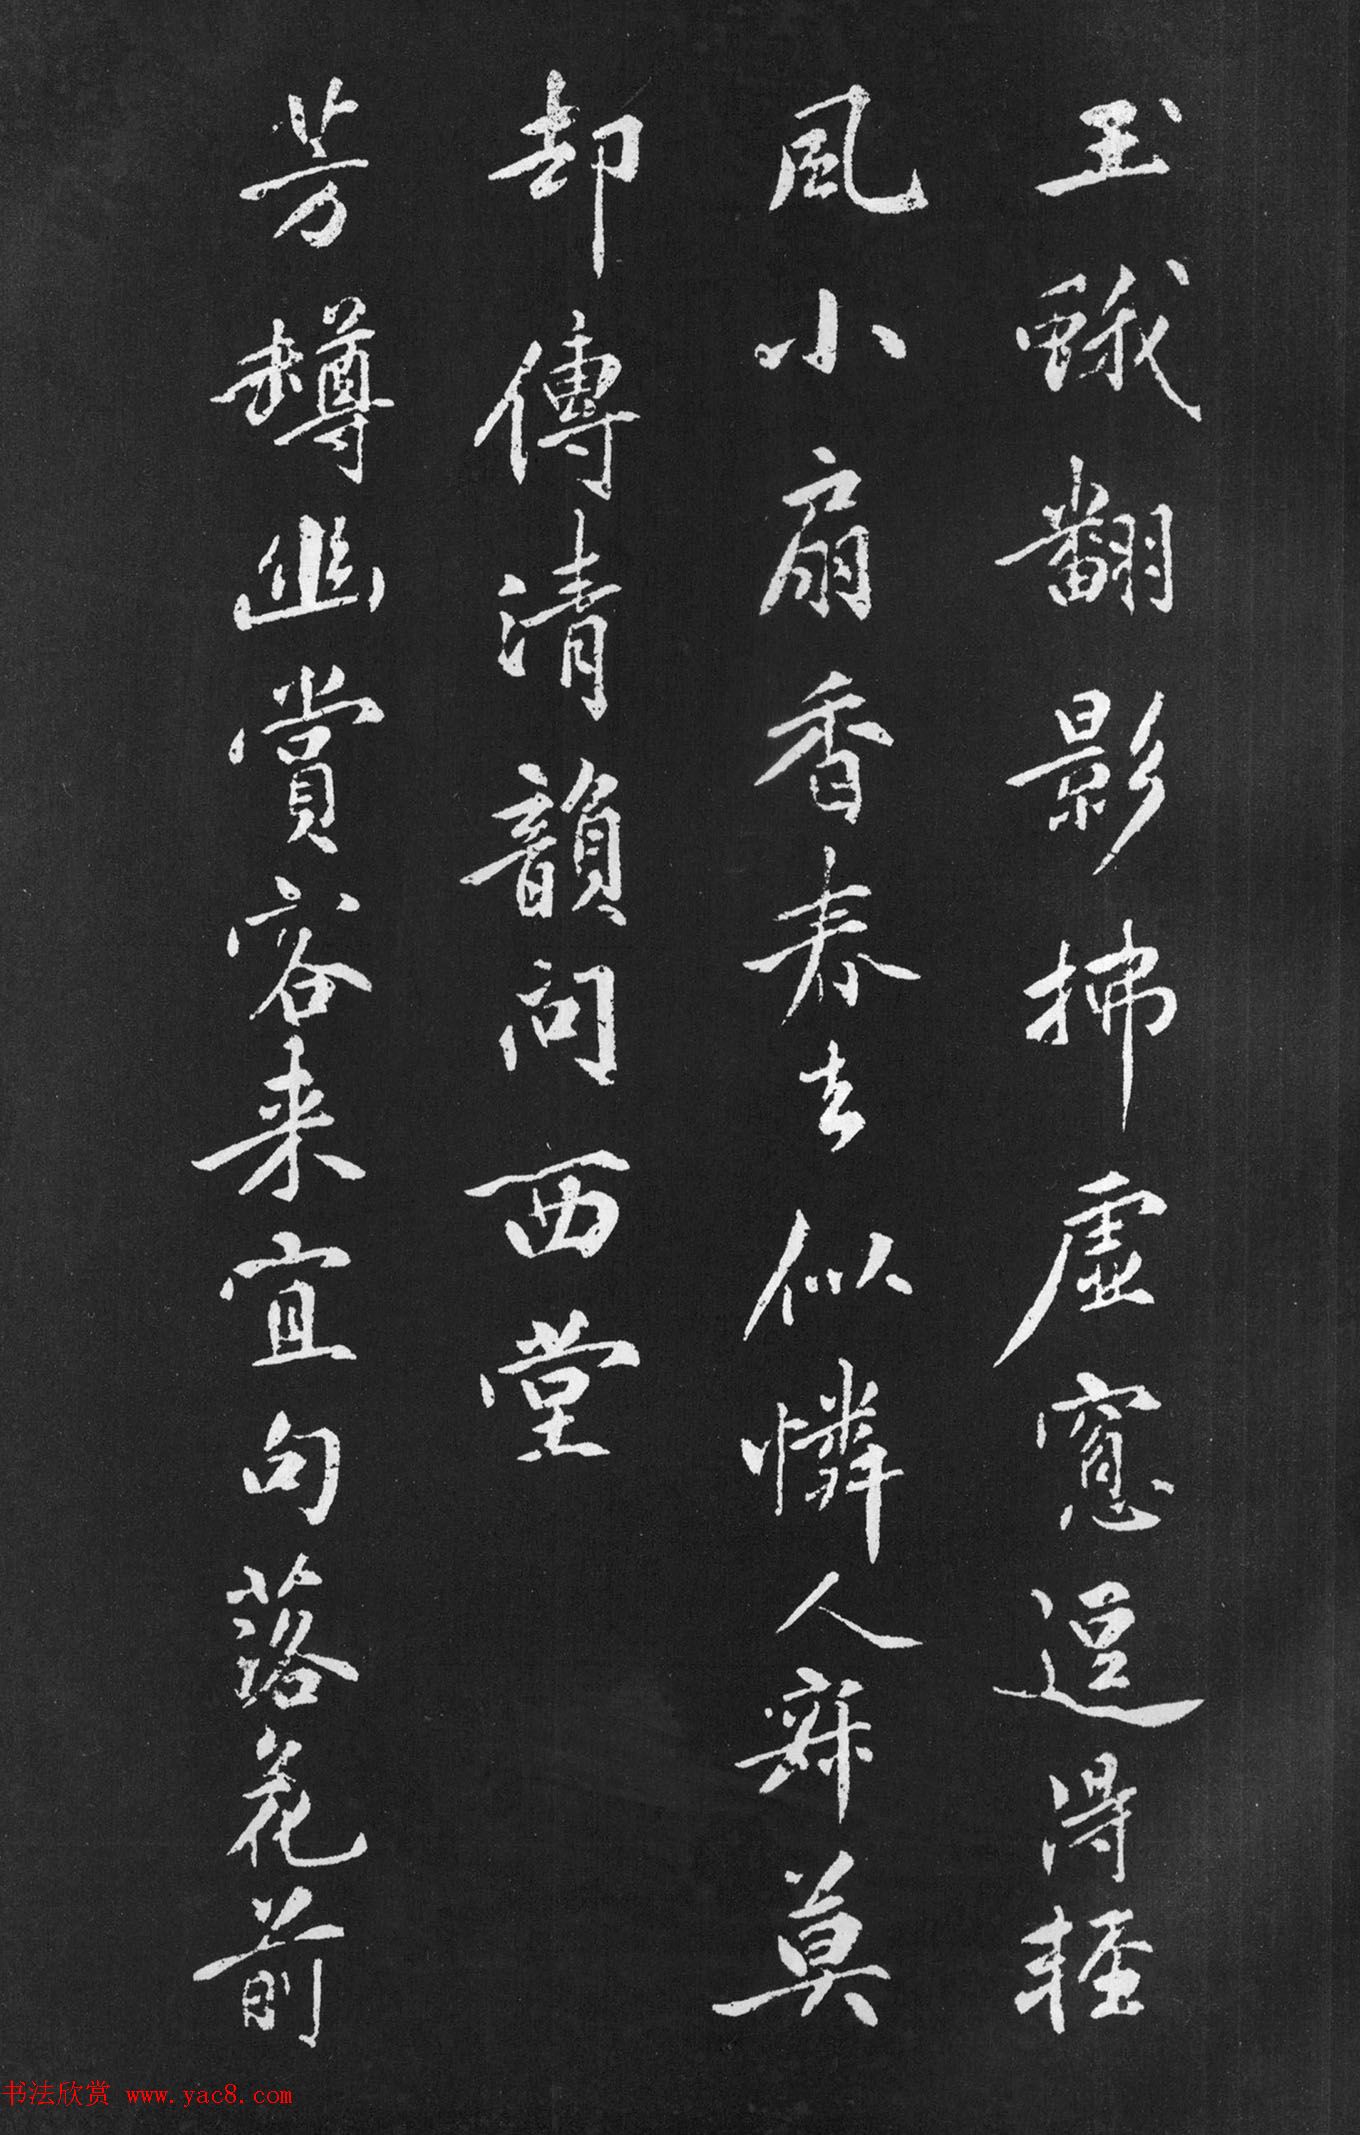 玉蛾翻影拂虛窻逗得輕
風小扇香春去似憐人寂莫
却傳清韻問西堂
芳罇幽賞客来宜句落花前
书法欣赏 www.yac8.com